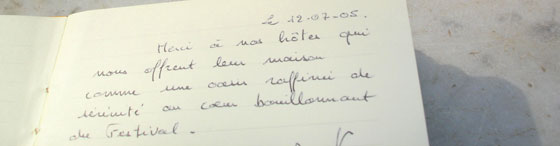 Le 12-07-05.
Merci à nos hôtes qui
nous offrent leur maison
comme une oasis raffinée de
sérénité au cœur bouillonnant
du Festival.